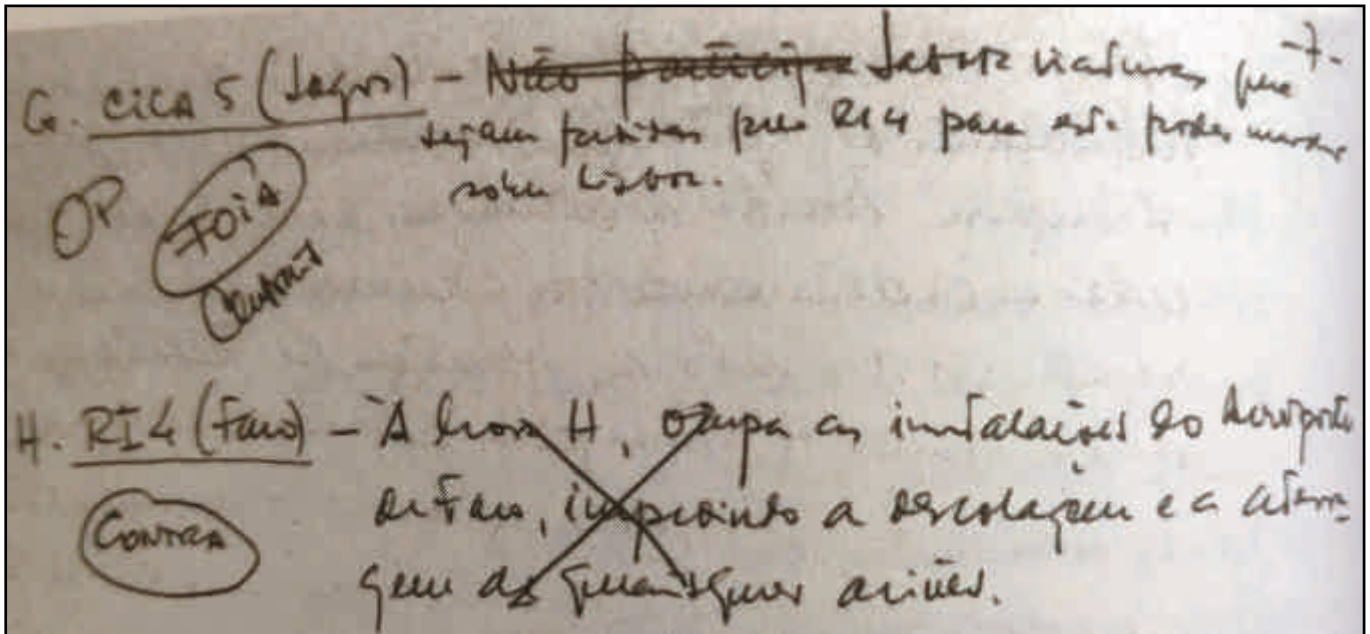 -7-
G. CICA 5 (Lagos) - Não participa viaturas que
sejam pelo RI4 para este poder
sobre Lisboa.
OP
FOIA
H. RI4 (Faro) - À hora H, ocupa as instalações do Aeroporto
de Faro, impedindo a descolagem e a aterra-
gem de quaisquer aviões.
CONTRA